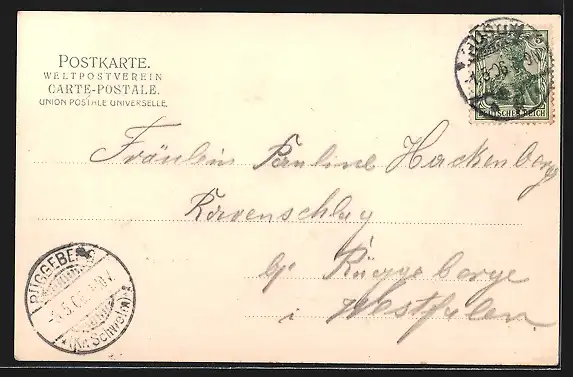 POSTKARTE.
WELTPOSTVEREIN
CARTE-POSTALE.
UNION POSTALE UNIVERSELLE.
5
DEUTSCHES REICH
Fräulein Pauline Hackenberg
b/ Rüggeberge
i Westfalen.
RÜGGEBERG
(Kr. Schwelm)